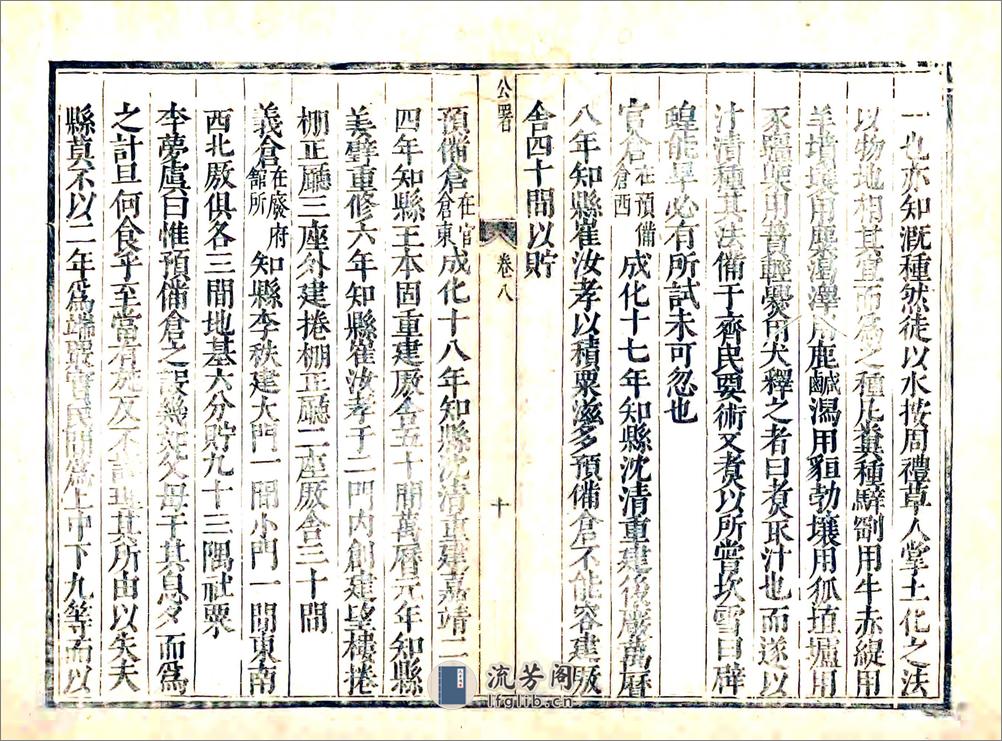 一也亦知漑種然徒以水按周禮草人掌土化之法
以物地相其宜而爲之種凡糞種騂剛用牛赤緹用
羊墳壤用麋渴澤用鹿鹹潟用貆勃壤用狐埴壚用
豕彊㯺用蕡輕㷿用犬釋之者曰煮取汁也而遂以
汁漬種其法備于齊民要術又煮以所嘗坎雪曰
蝗能旱必有所試未可忽也
官倉在預備倉西 成化十七年知縣沈清重建後嚴萬曆
八年知縣崔汝孝以積粟滋多預備倉不能容建厫
舍四十間以貯
公署 卷八 十
預備倉在官倉東成化十八年知縣沈清重建嘉靖二
四年知縣王本固重建厫舍五十間萬曆元年知縣
姜璧重修六年知縣崔汝孝于二門內創建望樓捲
棚正廳三座外建捲棚正廳二座厫舍三十間
義倉在廢府館所 知縣李秩建大門一間小門一間東南
西北厫俱各三間地基六分貯九十三隅社粟
李夢虞曰惟預備倉之設歲父母于其息夕而爲
之計旦何食乎至當有荒及不其所由以失夫
縣莫不以二年爲端最實民間爲上中下九等而以
流芳阁
lfglib.cn